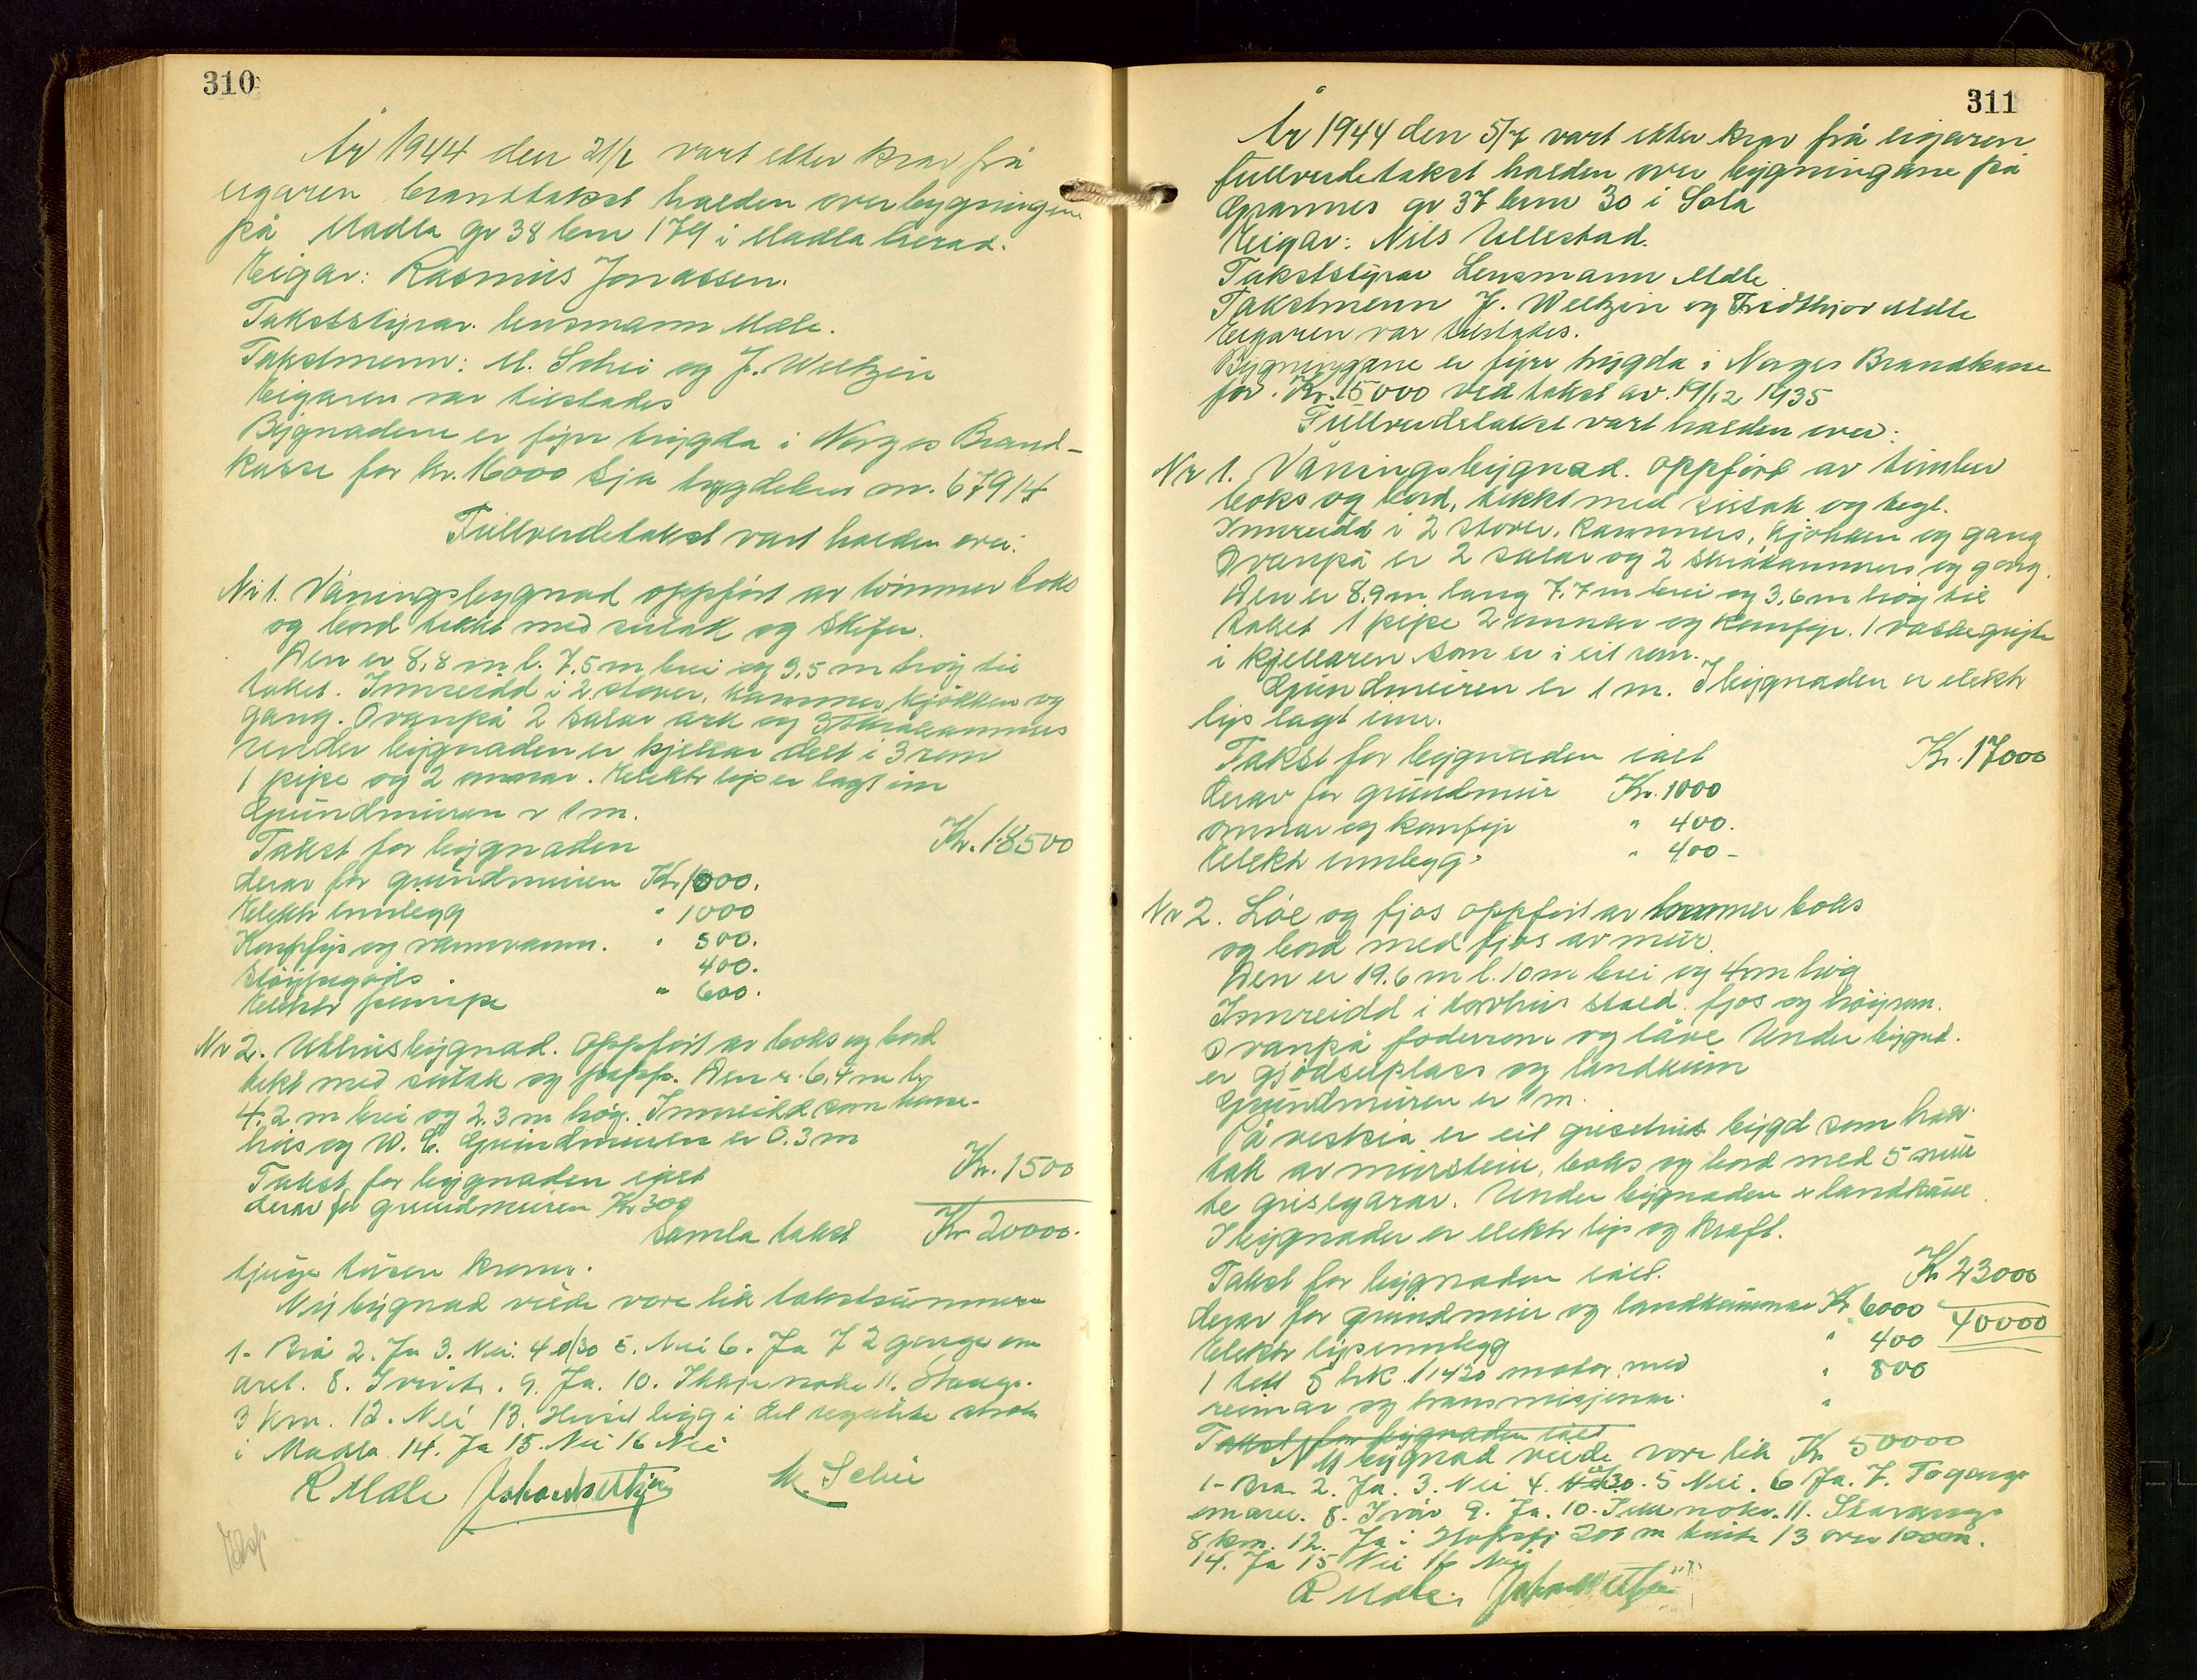 310
År 1944 den 21/2 vart etter krav frå
eigaren branntakst halden over bygningene
på Madla gr 38 brn 179 i Madla herad.
Eigar: Rasmus Jonassen.
Takststyrar. lensmann Mæle.
Takstmenn: M. Schei og J. Weltzin
Eigaren var tilstades
Bygnadene er fyrr trygda i Norges Brand-
kasse for kr. 16000 Sja trygdebrev nr. 67914
Fullverdetakst vart halden over:
Nr 1. Våningsbygnad oppført av timmer boks
og bord tekkt med sutak og skifer.
Den er 8,8 m l. 7,5 m brei og 3,5 m høg til
taket. Innreidd i 2 stover, kammer, kjøkken og
gang. Ovanpå 2 salar ark og 3 skråkammers
Under bygnaden er kjellar delt i 3 rom
1 pipe og 2 omnar. Elektr lys er lagt inn
Grundmuren er 1 m.
Takst for bygnaden Kr. 18500
derav for grundmuren Kr 1000.
Elektr innlegg " 1000
Komfyr og vannvarm. " 500.
Støypegods 400.
Elektr pumpe " 600.
Nr 2. Uthusbygnad. Oppført av boks og bord
tekt med sutak og papp. Den er 6,4 m l.
4,2 m brei og 2,3 m høg. Innreidd som hønse-
hus og W. C. Grundmuren er 0.3 m
Takst for bygnaden ialt Kr. 1500
derav for grundmuren Kr 300
Samla takst Kr 20000.
tjuge tusen kroner.
Nybygnad vilde vore lik takstsummen
1. Bra 2. Ja 3. Nei. 4 0/30 5. Nei 6. Ja 7 2 gonger om
året. 8. Irvirke. 9. Ja. 10. Ikkje noke 11. Stavgr.
3 km. 12. Nei 13. Huset ligg i det regulerte strok
i Madla 14. Ja 15. Nei 16 Nei
R Mæle Johan Weltzin M. Schei
311
År 1944 den 5/7 vart etter krav frå eigaren
fullverdetakst halden over bygningane på
Grannes gr 37 brn 30 i Sola
Eigar: Nils Ullestad.
Takststyrar Lensmann Mæle
Takstmenn J. Weltzin og Fridthjov Mæle
Eigaren var tilstades.
Bygningane er fyrr trygda i Norges Brandkasse
for Kr. 15000 ved takst av 19/12 1935
Fullverdetakst vart halden over:
Nr 1. Våningsbygnad. Oppført av timber
boks og bord, tekkt med sutak og tegl.
Innreidd i 2 stover. kammers, kjøkken og gang
Ovanpå er 2 salar og 2 skråkammers og gang.
Den er 8.9 m lang 7.7 m brei og 3,6 m høg til
taket 1 pipe 2 omnar og komfyr. 1 vaskegryte
i kjellaren som er i eit rom.
Grundmuren er 1 m. I bygnaden er elektr
lys lagt inn.
Takst for bygnaden ialt Kr. 17000
derav for grundmur Kr. 1000
omnar og komfyr " 400.
Elektr innlegg " 400 -
Nr 2. Løe og fjos oppført av timmer boks
og bord med fjos av mur.
Den er 19.6 m l. 10 m brei og 4 m høg
Innreidd i torvhus stald. fjos og høyrom.
Ovanpå foderrom og låve Under bygnad.
er gjødselplass og landkum
Grundmuren er 1 m.
På vestsia er eit grisehus bygd som halv
tak av murstein, boks og bord med 5 mur
te grisegarar. Under bygnaden er landkåve
I bygnaden er elektr lys og kraft.
Takst for bygnaden ialt. Kr 23000
derav for grundmur og landkummar Kr. 6000 40000
Elektr lysinnlegg " 400
1 kell 5 hk. 1420 motor, med " 800
reimar og transmisjonar. "
Takst for bygnaden ialt
Nybygnad vilde vore lik Kr 50000
1- Bra 2. Ja. 3. Nei 4. 0/30. 5 Nei. 6 Ja. 7. To gonger
om året. 8. Irvir 9. Ja. 10. Ikke noke. 11. Stavanger
8 km. 12. Ja i Hafrsfj 200 m 13 over 1000 m.
14. Ja 15 Nei 16 Nei
R Mæle. Johan Weltzin